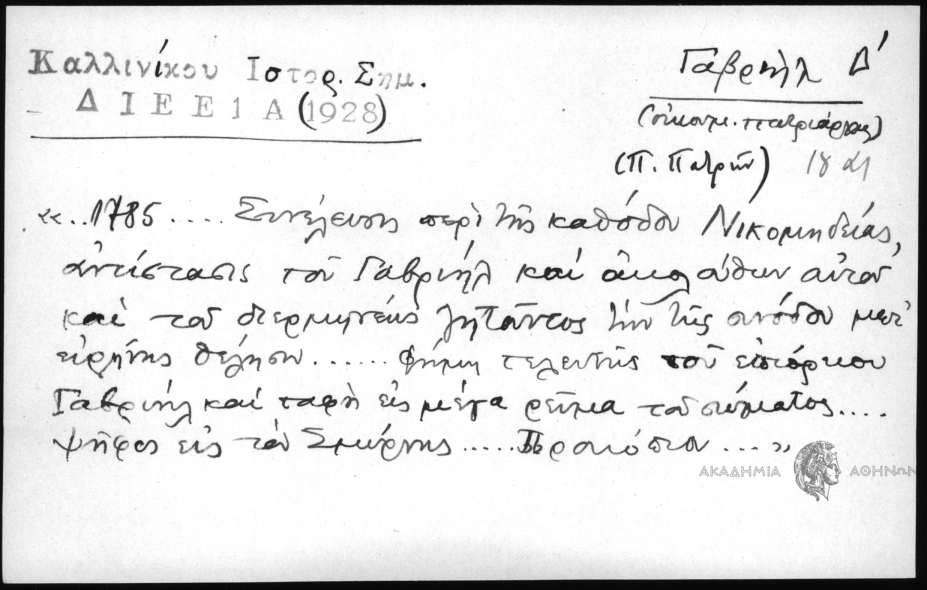 Καλλινίκου Ιστορ. Σημ.
Δ Ι Ε Ε 1 Α (1928)
Γαβριήλ Δ'
(οἰκουμ. πατριάρχης)
(Π. Πατρῶν) 18
«..1785 .... Συνέλευσις περὶ τῆς καθόδου Νικομηδείας,
ἀντίστασις τοῦ Γαβριὴλ καὶ ἀκολούθων αὐτοῦ
καὶ τοῦ διερμηνέως ζητοῦντος τὴν τῆς συνόδου μετ'
εἰρήνης θέλησιν...... φήμη τελευτῆς τοῦ ἐπιόρκου
Γαβριὴλ καὶ ταφὴ εἰς μέγα ρεῦμα τοῦ σώματος....
ψῆφος εἰς τὸν Σμύρνης ..... Προκόπιον ...»
ΑΚΑΔΗΜΙΑ ΑΘΗΝΩΝ